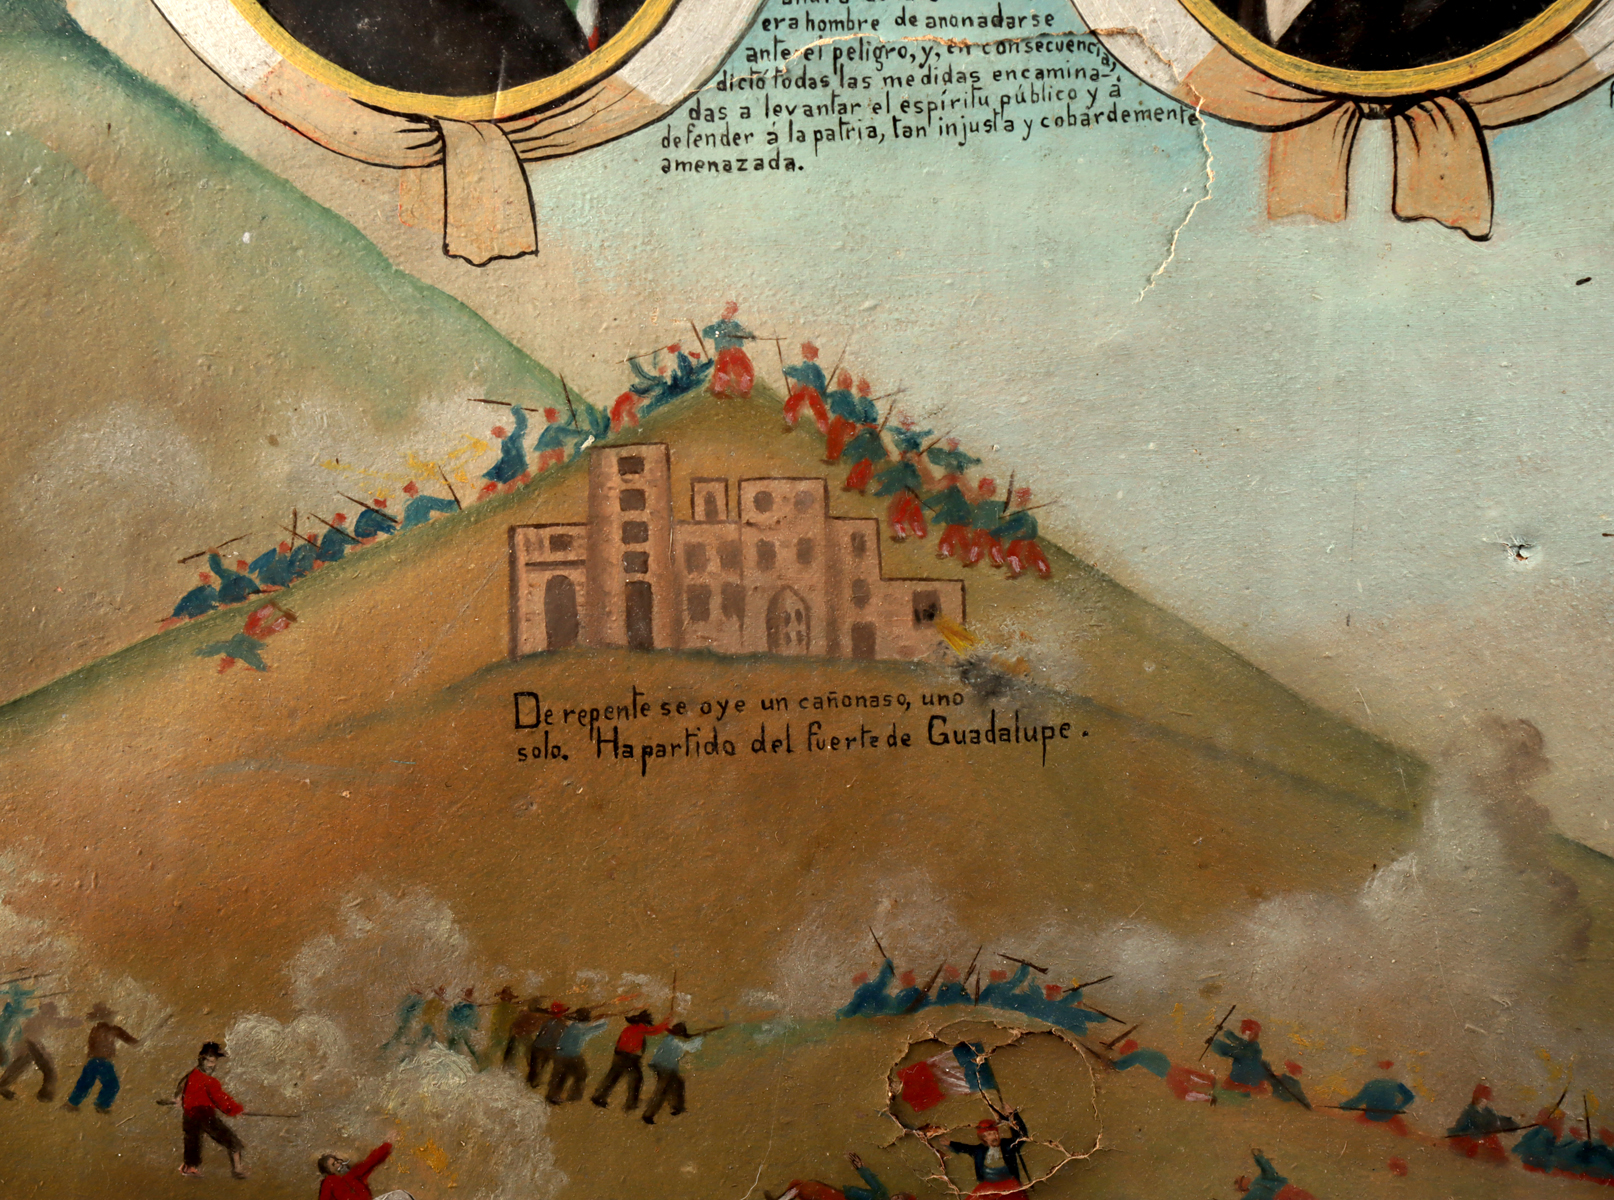 era hombre de anonadarse
ante el peligro, y, en consecuencia,
dictó todas las medidas encamina-
das a levantar el espíritu público y á
defender á la patria, tan injusta y cobardemente
amenazada.
De repente se oye un cañonaso, uno
solo. Ha partido del fuerte de Guadalupe.